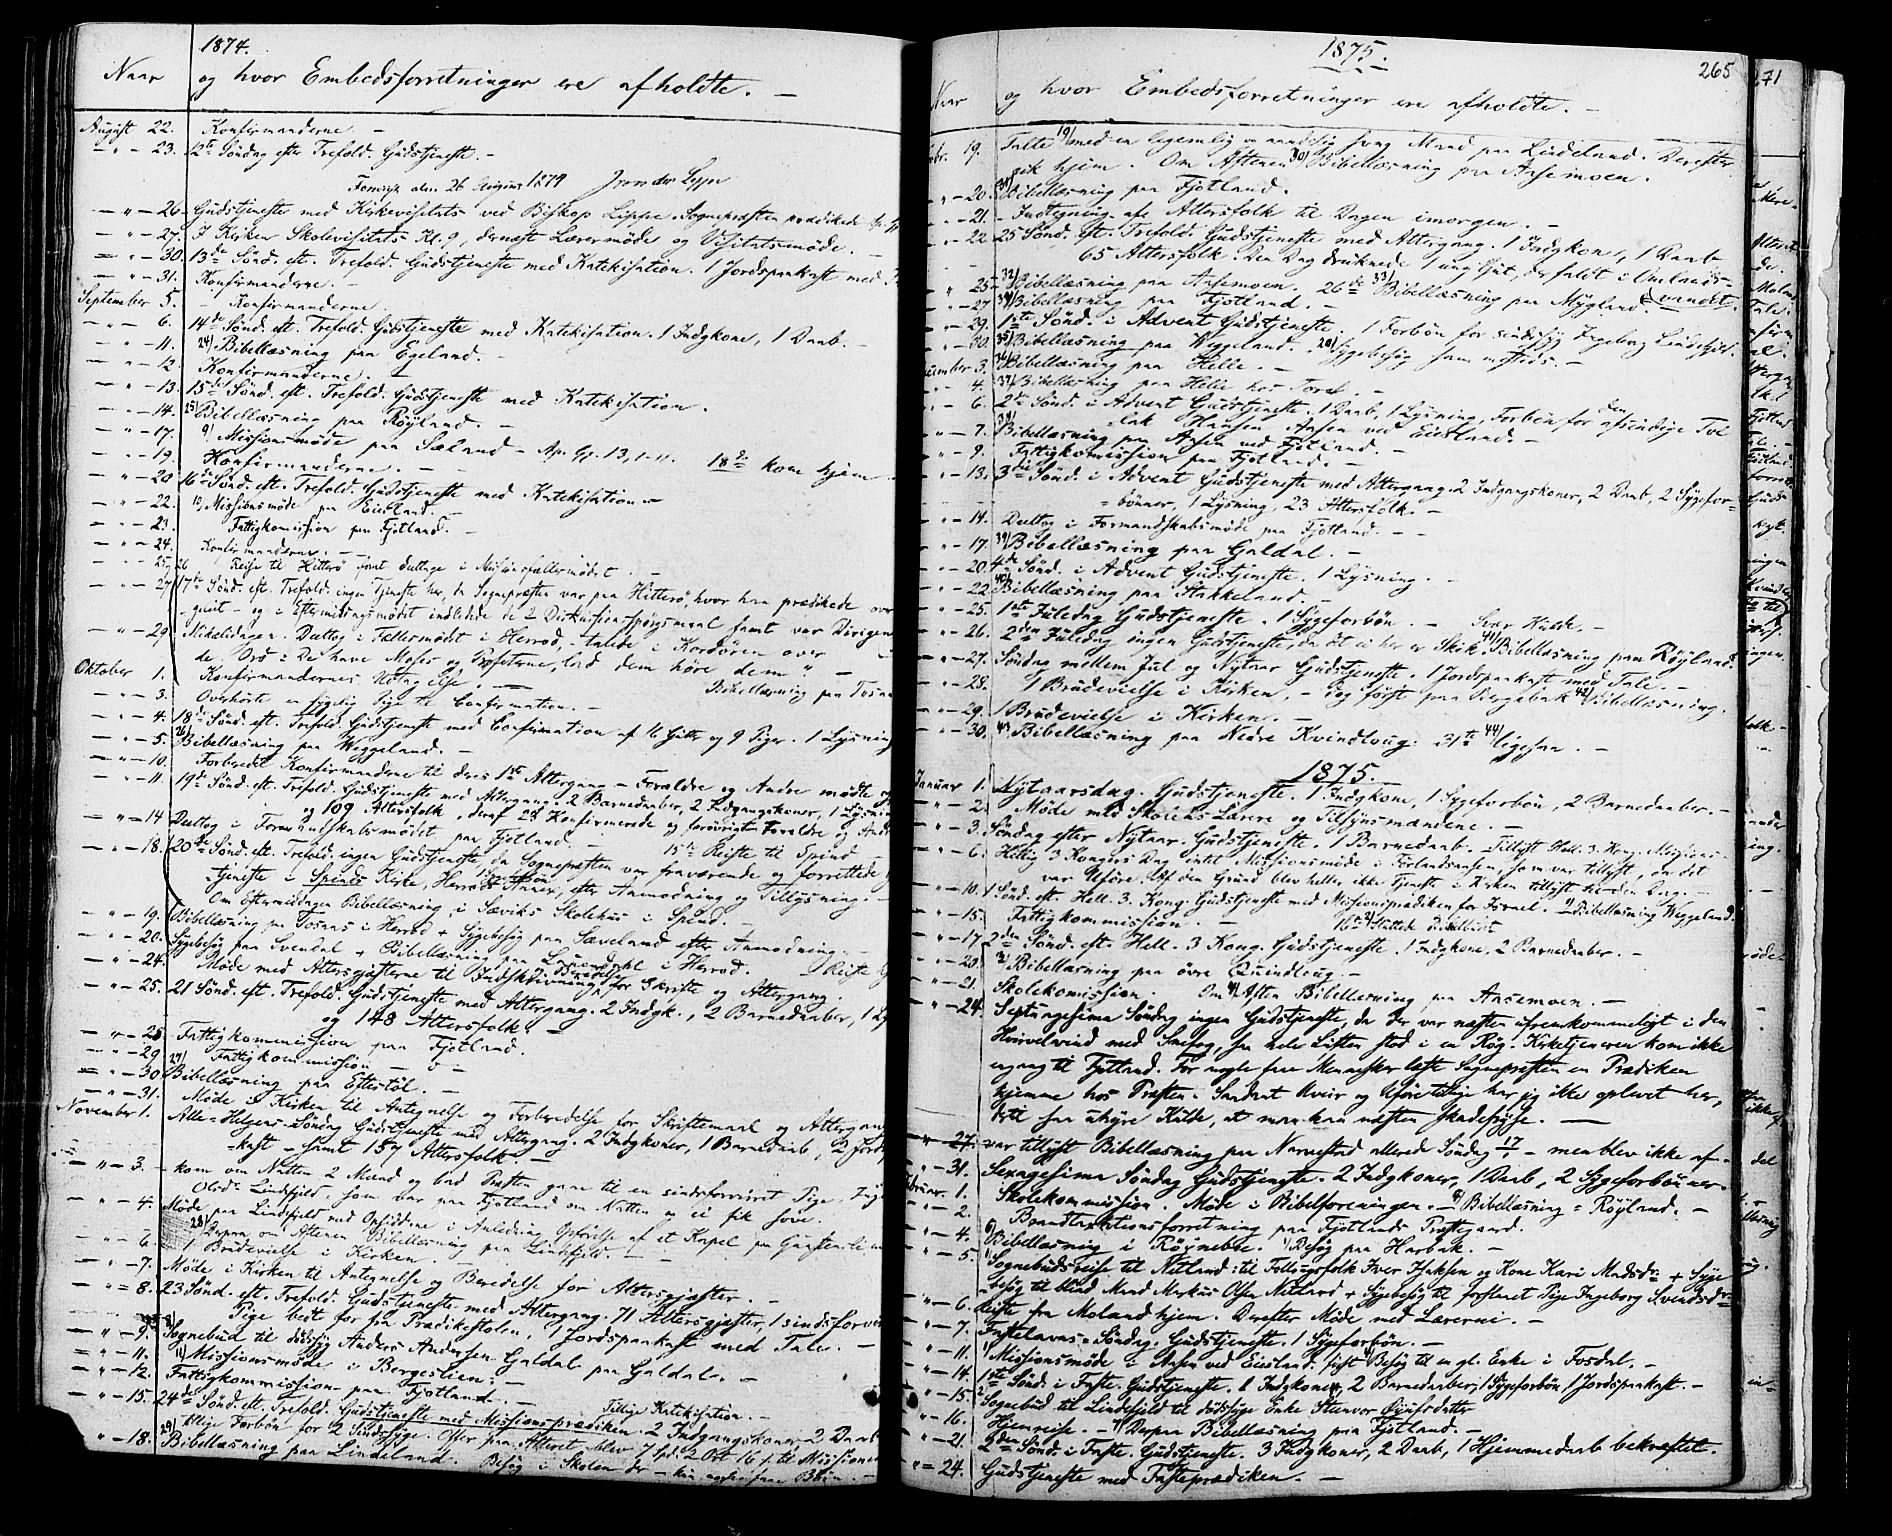 1874.
Naar og hvor Embedsforretninger ere afholdte. —
August 22. Konfirmanderne. —
— " — 23. 12te Søndag efter Trefold. Gudstjeneste. —
26 August 1874
— " — 26. Gudstjeneste med Kirkevisitats ved Biskop Lippe. Sognepræsten prædikede
— " — 27. I Kirken Skolevisitats Kl. 9, dernæst Lærermøde og Visitatsmøde. —
— " — 30. 13de Sønd. eft. Trefold. Gudstjeneste med Katekisation. 1 Jordspaakast med
— " — 31. Konfirmanderne. —
September 5. Konfirmanderne.
— " — 6. 14de Sønd. eft. Trefold. Gudstjeneste med Katekisation. 1 Indgkone, 1 Daab. —
— " — 11. 24) Bibellæsning paa Egeland. —
— " — 12 Konfirmanderne. —
— " — 13. 15de Sønd. eft. Trefold. Gudstjeneste med Katekisation.
— " — 14. 25) Bibellæsning paa Røyland. —
— " — 17. 9) Missionsmøde paa Sæland — Ap. Gj. 13, 1-11. 18de kom hjem.
— " — 19. Konfirmanderne. —
— " — 20 16de Sønd. eft. Trefold. Gudstjeneste med Katekisation. —
— " — 22. 10) Missionsmøde paa Eiesland. —
— " — 23. Fattigkomission paa Fjotland. —
— " — 24. Konfirmanderne. —
— " — 25, 26 Reise til Hitterø for at deltage i Missionsfællesmødet. —
— " — 27. 17de Sønd. eft. Trefold. ingen Tjeneste her, da Sognepræsten var paa Hitterø, hvor han prædikede over
— og i Eftermiddagsmødet indledede de 2 Diskussionsspørgsmaal samt var Dirigent
— " — 29. Mikelidagen. Deltog i Fællesmødet i Herred — talede i Kordøren over
de Ord: De have Moses og Profeterne, lad dem høre dem " —
Oktober 1. Konfirmandernes Modtagelse. — Bibellæsning paa Tosnas
— " — 3. Overhørte en sygelig Pige til Confirmation. —
— " — 4. 18de Sønd. eft. Trefold. Gudstjeneste med Confirmation af 16 Gutter og 9 Piger. 1 Lysning
— " — 5. 26) Bibellæsning paa Weggeland. —
— " — 10. Forberedt Konfirmanderne til deres 1ste Altergang — Forældre og Andre mødte og
— " — 11. 19de Sønd. eft. Trefold. Gudstjeneste med Altergang. 2 Barnedaaber, 2 Indgangskoner, 1 Lysning
og 109 Altersfolk, deraf 23 Konfirmerede og forøvrigt Forældre og Andre
— " — 14 Deltog i Formandskabsmødet paa Fjotland. — 15de Reiste til Spind
— " — 18. 20de Sønd. eft. Trefold. ingen Gudstjeneste, da Sognepræsten var fraværende og forrettede
=tjeneste i Spinds Kirke, Herreds Annex, efter Anmodning og Tillysning. —
Om Eftermiddagen Bibellæsning i Sæviks Skolehus i Spind. —
— " — 19. Bibellæsning paa Tosnas i Herred + Sygebesøg paa Sæveland efter Anmodning. —
— " — 20. Sygebesøg paa Svendal + Bibellæsning paa i Herred. Reiste
— " — 24. Møde med Altersgjæsterne til Indskrivning, Beredelse for Skrifte og Altergang.
— " — 25. 21 Sønd. eft. Trefold. Gudstjeneste med Altergang. 2 Indgk., 2 Barnedaaber, 1
og 148 Altersfolk. —
— " — 28 Fattigkommission paa Fjotland.
— " — 29 Fattigkommission — " —
— " — 30 27) Bibellæsning paa Ettestøl. —
— " — 31. Møde i Kirken til Antegnelse og Forberedelse for Skriftemaal og Altergang
November 1. Alle-Helgens-Søndag Gudstjeneste med Altergang. 2 Indgkoner, 1 Barnedaab, 2 Jordspaa-
=kast — samt 157 Altersfolk. —
— " — 3. — kom om Natten 2 Mænd og bad Præsten gaae til en sindsforvirret Pige.
Olsdr. Lindefjeld, som var paa Fjotland om Natten og ei fik sove.
— " — 4. Møde paa Lindefjeld med Opsidderne i Anledning Opførelse af et Kapel paa
28) Derpaa om Aftenen Bibellæsning paa Lindefjeld. —
— " — 6. 1 Brudevielse i Kirken. —
— " — 7. Møde i Kirken til Antegnelse og Beredelse for Altersgjæster. —
— " — 8. 23 Sønd. eft. Trefold. Gudstjeneste med Altergang. 71 Altersgjæster, 1 sindsforvirret
Pige bedt for fra Prædikestolen, 1 Jordspaakast med Tale. —
— " — 9. Sognebud til dødssyg Anders Andersen Galdal paa Galdal. —
— " — 11. 11) Missionsmøde i Bergeslien. —
— " — 12. Fattigkommission paa Fjotland. —
— " — 15. 24de Sønd. eft. Trefold. Gudstjeneste med Missionsprædiken. Tillige Katekisation. — 2 Indgangskoner, 2 Daab
tillige Forbøn for 2 Sindssyge. Offer paa Alteret blev 7 Spd. 2 Ort 16 s. til Missionen
— " — 18. 29) Bibellæsning paa Lindeland. Besøg i Skolen der —
1875.
265
271
Naar og hvor Embedsforretninger ere afholdte. —
19. Talte 19) med en legemlig og aandelig syg Mand paa Lindeland. Derefter
gik hjem. Om Aftenen 30) Bibellæsning paa Aasemoen.
— " — 20. 31) Bibellæsning paa Fjotland.
— " — 21. — Indtegning af Altersfolk til Dagen imorgen. —
— " — 22 25 Sønd. eft. Trefold. Gudstjeneste med Altergang. 1 Indgkone, 1 Daab
65 Altersfolk. Den Dag druknede 1 ung Gut, der faldt i Omlands-
vandet.
— " — 25. 32) Bibellæsning paa Aasemoen. 26de 33) Bibellæsning paa Mygland.
— " — 27 34) Bibellæsning paa Fjotland. —
— " — 29. 1ste Sønd. i Advent Gudstjeneste. 1 Forbøn for sindssyg Ingeborg Lindefjeld.
— " — 30. 35) Bibellæsning paa Weggeland. 20) Sygebesøg sammesteds. —
December 3. 36) Bibellæsning paa Helle. —
— " — 4. 37) Bibellæsning paa Helle hos Tore. —
— " — 6. 2den Sønd. i Advent Gudstjeneste. 1 Daab, 1 Lysning, Forbøn for den afsindige Tol-
=lak Hansen Aasen ved Eiesland. —
— " — 7. 38) Bibellæsning paa Aasen ved Fjotland. —
— " — 9. Fattigkomission paa Fjotland. —
— " — 13. 3die Sønd. i Advent Gudstjeneste med Altergang. 2 Indgangskoner, 2 Daab, 2 Sygefor-
=bønner, 1 Lysning, 23 Altersfolk. —
— " — 14. Deltog i Formandskabsmøde paa Fjotland. —
— " — 17 39) Bibellæsning paa Galdal. —
— " — 20. 4de Sønd. i Advent Gudstjeneste. 1 Lysning. —
— " — 22 40) Bibellæsning paa Stakkeland. —
— " — 25. 1ste Juledag Gudstjeneste. 1 Sygeforbøn. — Svær Kulde. —
— " — 26. 2den Juledag ingen Gudstjeneste, da det ei her er Skik. 41) Bibellæsning paa Røyland.
— " — 27. Søndag mellem Jul og Nytaar Gudstjeneste. 1 Jordspaakast med Tale. —
— " — 28. 1 Brudevielse i Kirken. — Tog først paa Bergabak 42) Bibellæsning.
— " — 29. 1 Brudevielse i Kirken. —
— " — 30. 43) Bibellæsning paa Nedre Kvindloug. 31te 44) ligesaa. —
1875.
Januar 1. Nytaarsdag. Gudstjeneste. 1 Indgkone, 1 Sygeforbøn, 2 Barnedaaber. —
— " — 2. Møde med Skolens Lærere og Tilsynsmændene. —
— " — 3. Søndag efter Nytaar. Gudstjeneste. 1 Barnedaab. — Tillyst Hell. 3 Kong. Missions-
— " — 6. Hellig 3 Kongers Dag intet Missionsmøde i Førlandsaasen, som var tillyst, da det
var Uføre. Af den Grund blev heller ikke Tjeneste i Kirken tillyst til den Dag. —
— " — 10. 1 Sønd. eft. Hell. 3. Kong. Gudstjeneste med Missionsprædiken for Israel. 1) Bibellæsning Weggeland.
— " — 15. Fattigkommission. —
— " — 17 2den Sønd. eft. Hell. 3 Kong. Gudstjeneste. 1 Indgkone, 2 Barnedaaber. —
— " — 20. 3) Bibellæsning paa øvre Quindloug. —
— " — 21. Skolekomission. Om 4) Aften Bibellæsning paa Aasemoen. —
— " — 24. Septuagesima Søndag ingen Gudstjeneste, da der var næsten ufremkommeligt i den
Hvirvelvind med Snefog, saa hele Luften stod i en Røg. Kirketjeneren kom ikke
engang til Fjotland. For nogle faa Mennesker læste Sognepræsten en Prædiken
hjemme hos Præsten. Sandant Uveir og Uføre tillige har jeg ikke oplevet her,
dertil saa uhyre Kulde, at man kan næsten ihjelfryse. —
— " — 27. var tillyst Bibellæsning paa Narvestad allerede Søndag 17/1 — men blev ikke af-
— " — 31. Sexagesima Søndag Gudstjeneste. 2 Indgkoner, 1 Daab, 2 Sygeforbønner.
Februar. 1. Skolekommission. Møde i Bibelforeningen. — Bibellæsning = Røyland. —
— " — 2. Brandtaxationsforretning paa Fjotlands Præstegaard. —
— " — 4. 6) Bibellæsning i Røynebøe. 1) Besøg paa Harbak. —
— " — 5. 1) Sognebudsreise til Netland: til Follaugsfolk Iver Isaksen og Kone Kari Madsdr. + Syge-
besøg til blind Mand Markus Olsen Netland + Sygebesøg til forslaaet Pige Ingeborg Svendsdr.
— " — 6. Reiste fra Moland hjem. Derefter Møde med Lærerne. —
— " — 7. Fastelavns-Søndag. Gudstjeneste. 1 Sygeforbøn. —
— " — 11. 1) Missionsmøde i Aasen ved Eiesland, først Besøg til en gl. Enke i Fosdal. —
— " — 14. 1ste Sønd. i Faste. Gudstjeneste. 1 Indgkone, 2 Barnedaaber, 1 Sygeforbøn, 1 Jordspaakast. —
— " — 15. 2) Sognebud til Lindefjeld til dødssyge Enke Steenvor Øyufsdatter
— " — 16. Hjemreise. — Derpaa Bibellæsning paa Fjotland. —
— " — 21. 2den Sønd. i Faste. Gudstjeneste. 3 Indgkoner, 2 Daab, 1 Hjemmedaab bekræftet.
— " — 24. Gudstjeneste med Fasteprædiken. —